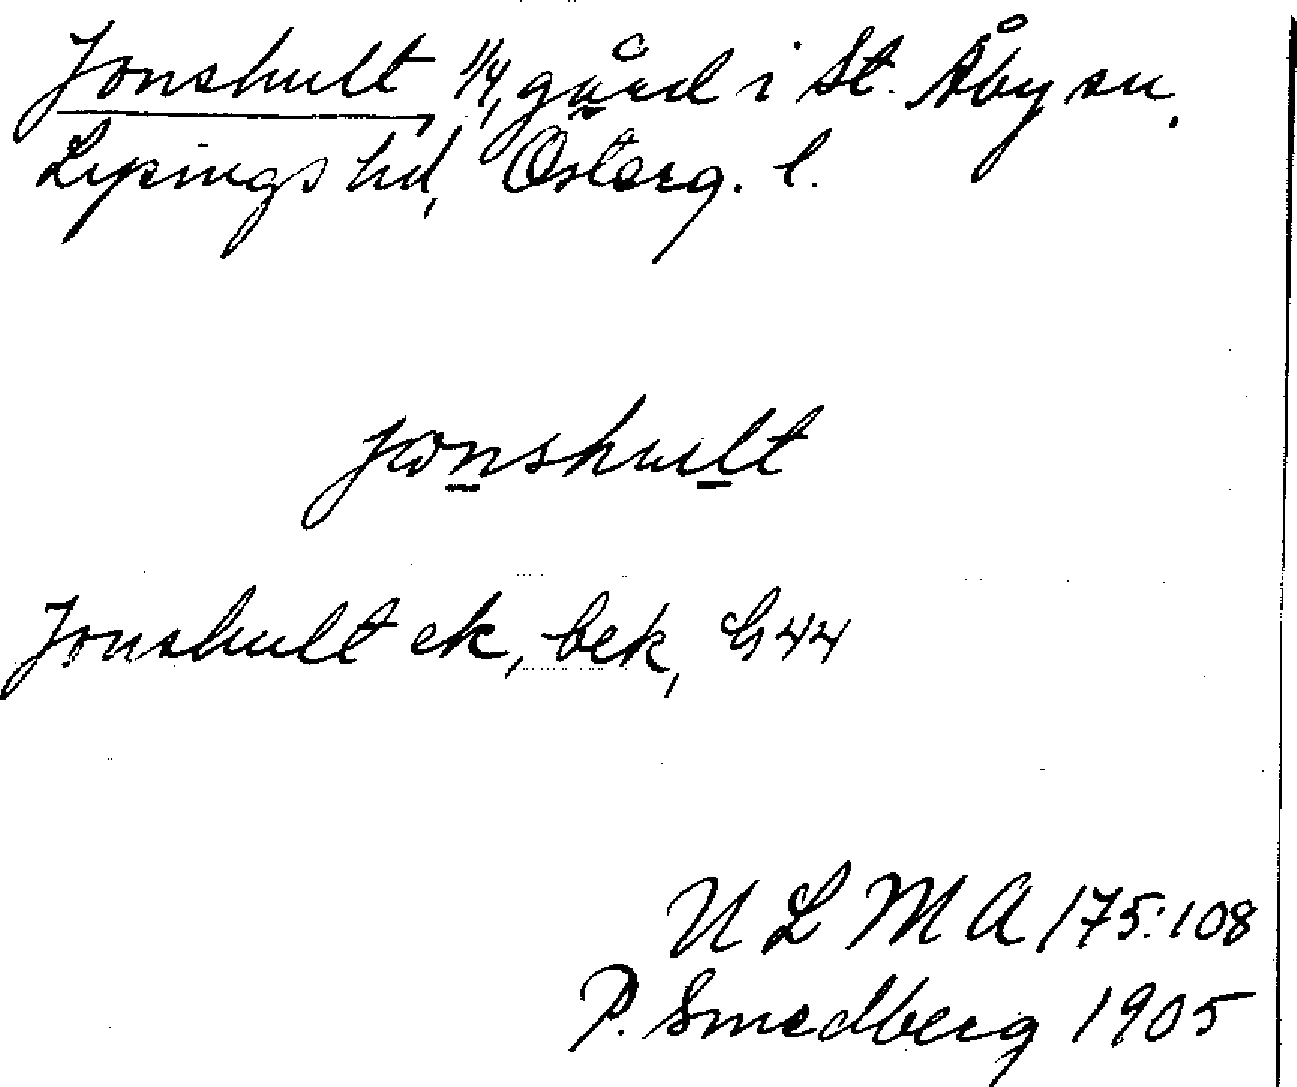 Jonshult 1/4, gård i St. Åby sn.
Lysings hd, Österg. l.
jonshult
Jonshult ek, bek, G44
ULMA 175:108
P. Smedberg 1905